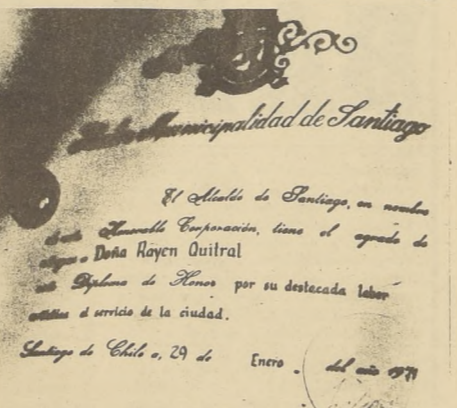 Municipalidad de Santiago
El Alcalde de Santiago, en nombre
Honorable Corporación, tiene el agrado de
a Doña Rayen Quitral
Diploma de Honor por su destacada labor
al servicio de la ciudad.
Santiago de Chile a, 29 de Enero. del año 1971